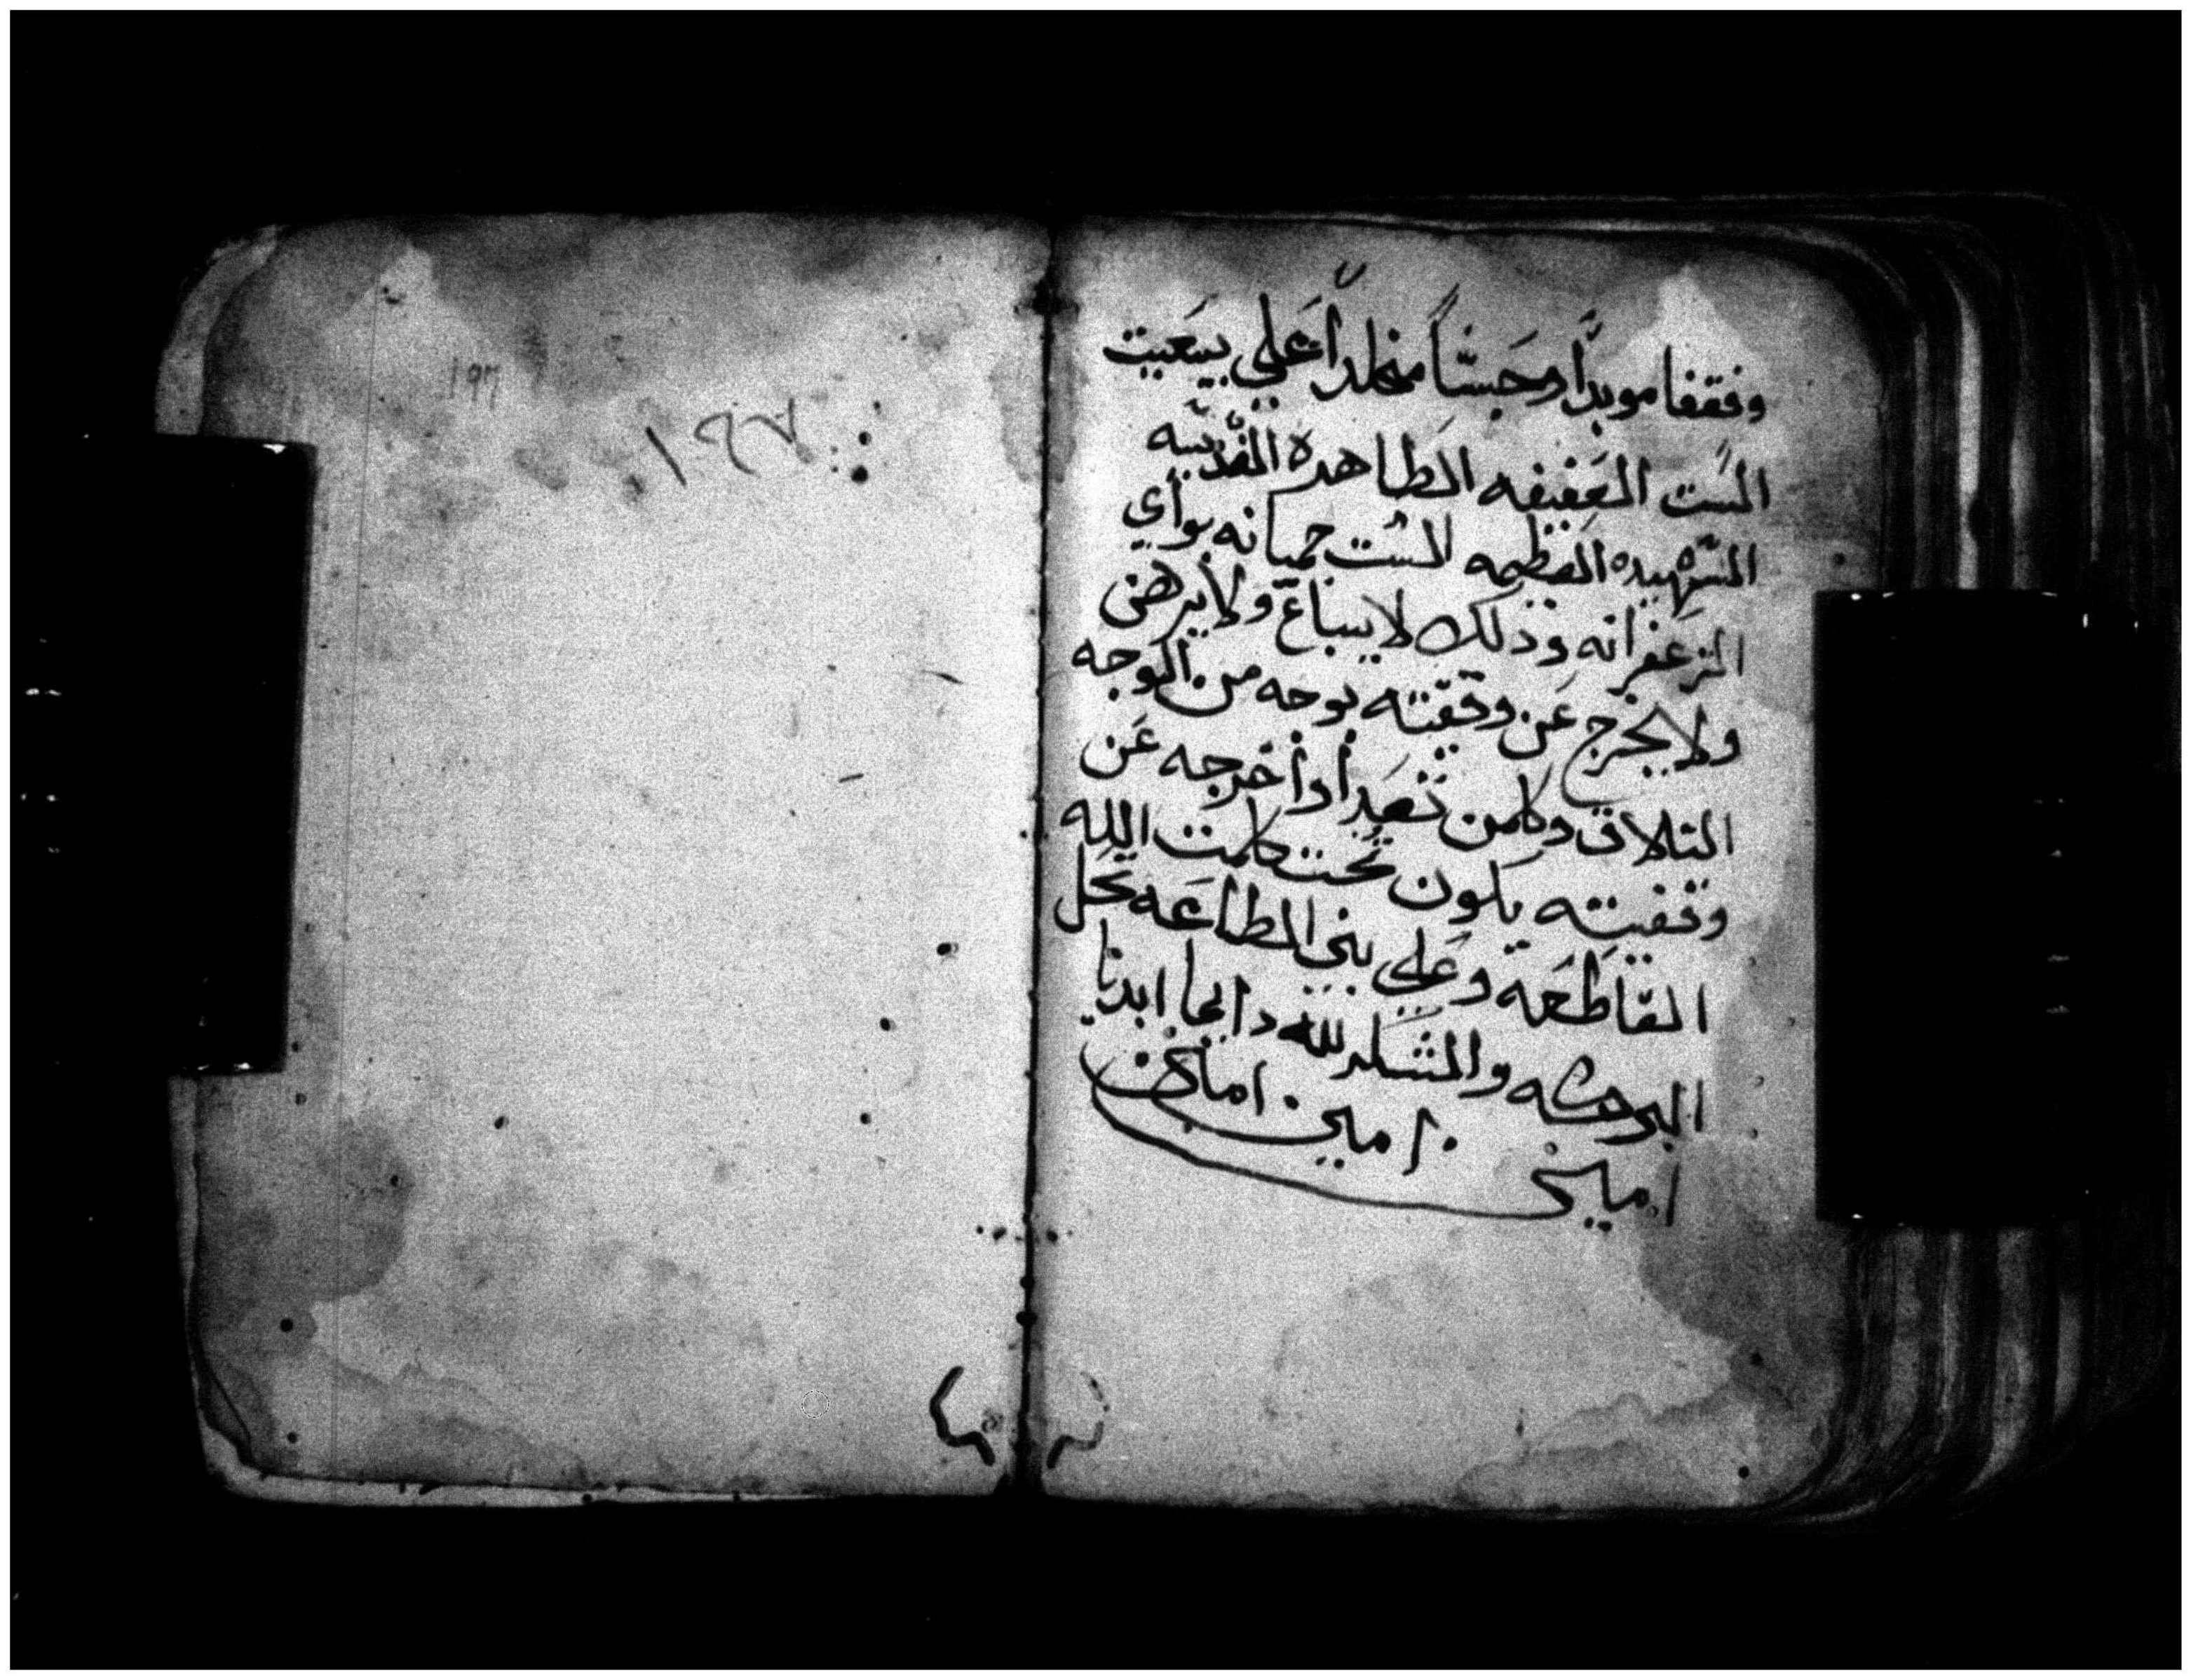 وقفا موبداً وحبساً مخلداً على بيعيت
الست العفيفه الطاهره القديسه
الشهيده العظيمه الست دميانه بوادي
الزعفرانه وذلك لا يباع ولا يرهن
ولا يخرج عن وقفيته بوجه من الوجه
التلاف وكلمن تعدا واخرجه عن
وقفيته يكون تحت كلمت الله
القاطعه وعلي بني الطاعه تحل
البركه والشكر لله دايما ابديا
امين امين
امين
١٩٧
١٩٦